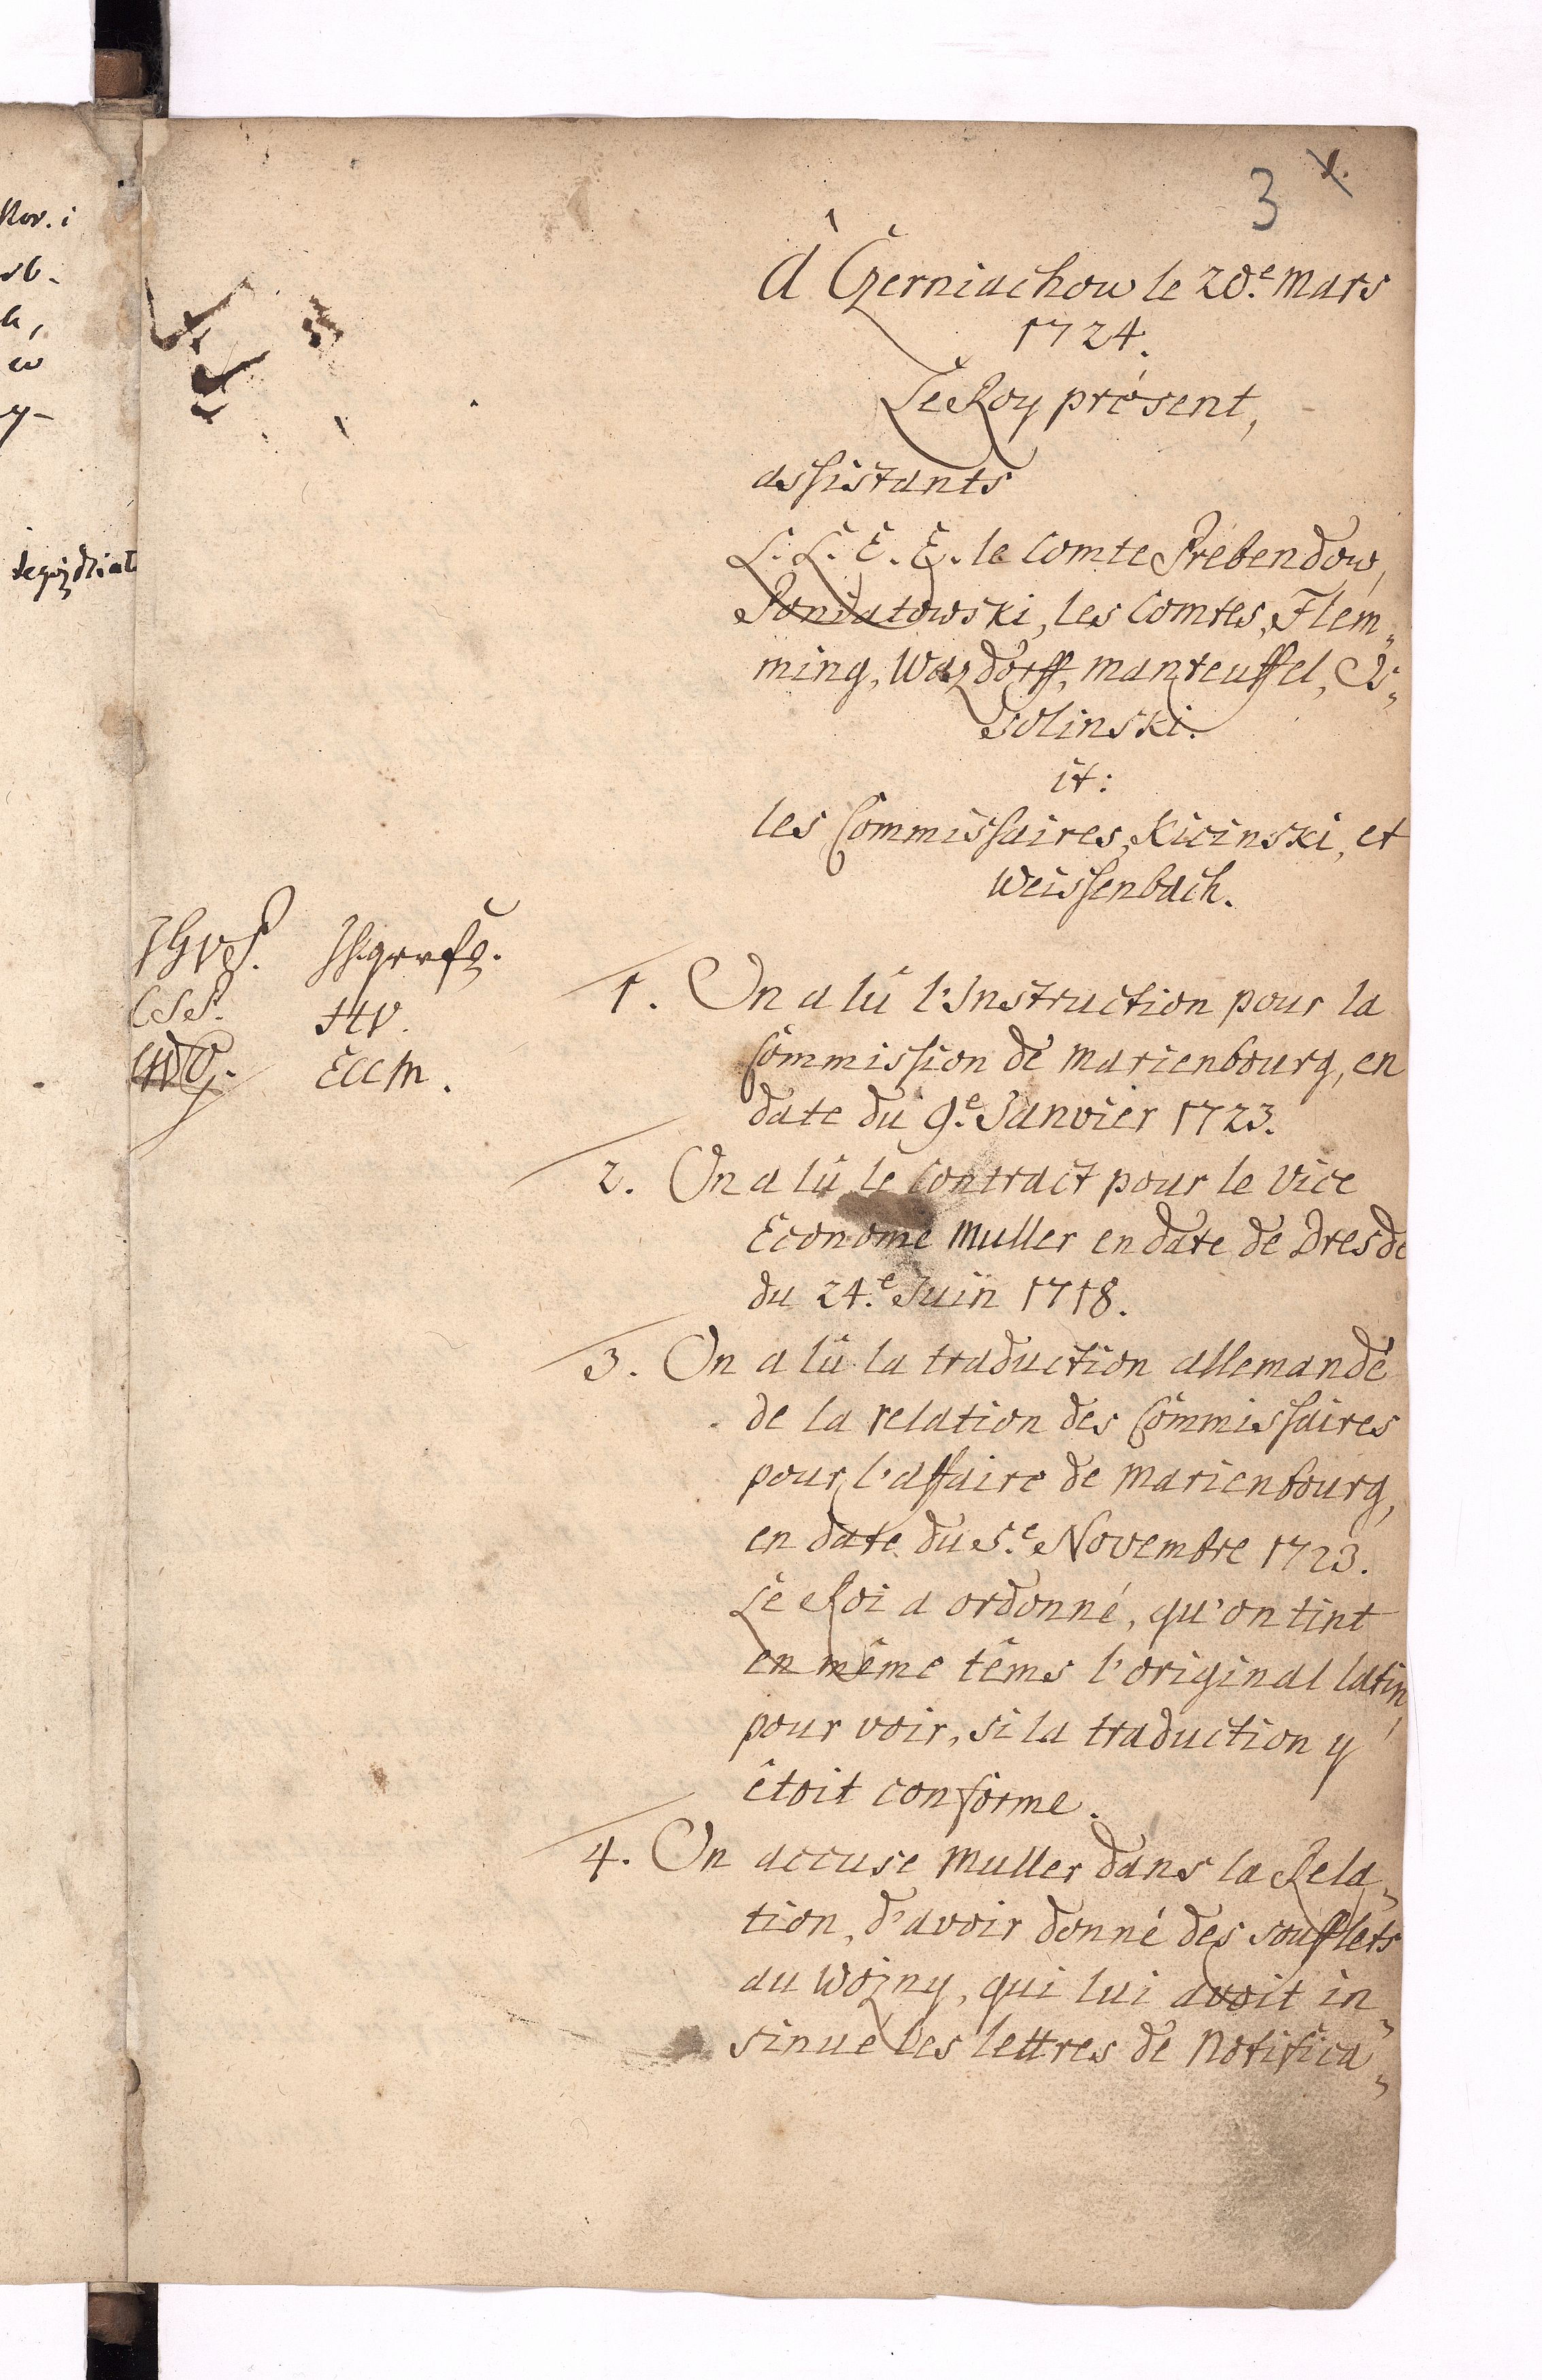 3 1.
à Czerniachow le 28.e Mars
1724.
Le Roy présent,
assistants
L. L. E. E. le Comte Prebendow,
Poniatowski, les Comtes, Flem„
ming, Wazdorff, Manteuffel, &
solinski.
it:
les Commissaires, Kicinski, et
Weissenbach.
1. On a lû l'Instruction pour la
Commission de Marienbourg, en
date du 9.e Janvier 1723.
2. On a lû le Contract pour le Vice
Econome Muller en date de Dresde
du 24.e Juin 1718.
3. On a lû la traduction allemande
de la relation des Commissaires
pour l'affaire de Marienbourg,
en date du 5.e Novembre 1723.
Le Roi a ordonné, qu'on tint
en même têms l'original latin,
pour voir, si la traduction y
êtoit conforme.
4. On accuse Muller dans la Rela„
tion, d'avoir donné des soufflets
au Wozny, qui lui avoit in„
sinue les lettres de Notifica„
JHVP.
CSP. HV.
ECCM.